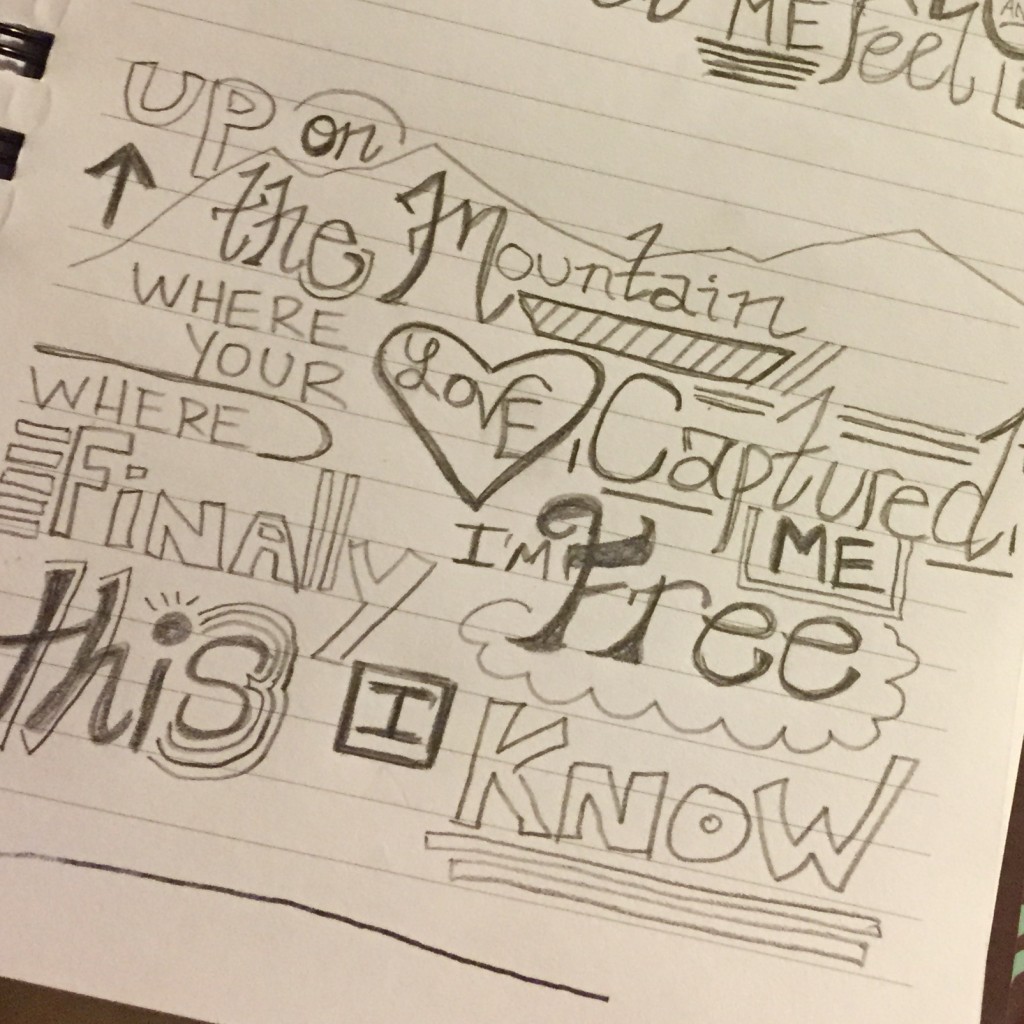 ME feel
UP on
the Mountain
WHERE
YOUR LOVE Captured
ME
WHERE
FiNAlly I'M Free
this I
KNOW